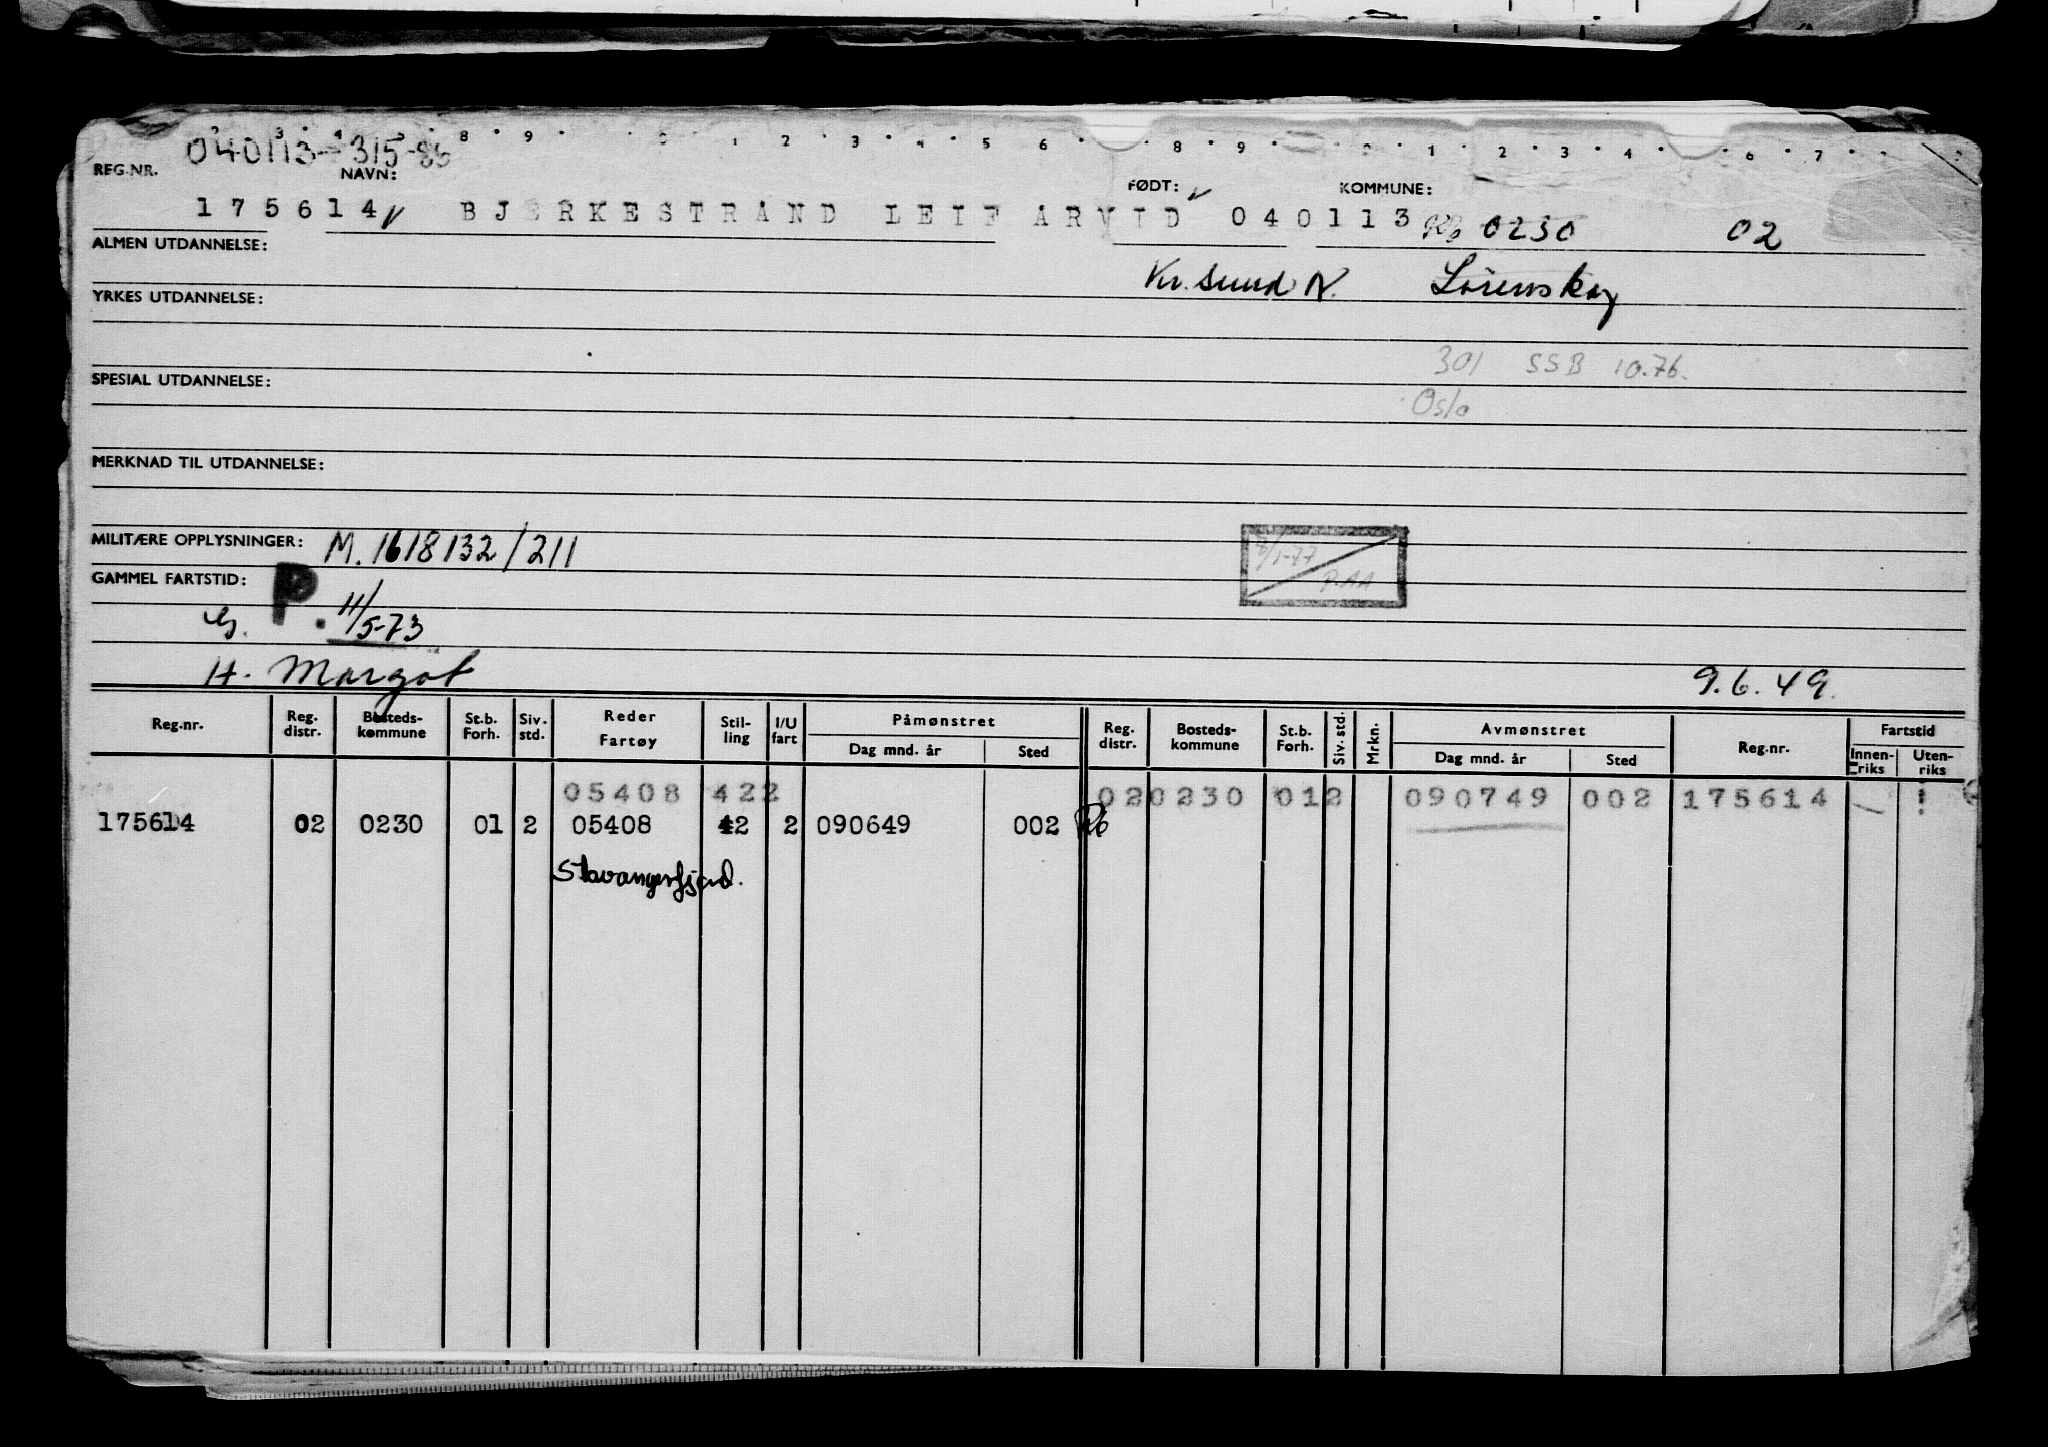 3 4 5 8 9 0 1 2 3 4 5 6 8 9 0 1 2 3 4 6 7
040113-315-
REG.NR. NAVN: FØDT: KOMMUNE:
175614 BJERKESTRAND LEIF ARVID 040113 0230 02
ALMEN UTDANNELSE:
Kr.sund N. Lørenskog
YRKES UTDANNELSE:
301 SSB 10.76.
SPESIAL UTDANNELSE:
Oslo
MERKNAD TIL UTDANNELSE:
MILITÆRE OPPLYSNINGER: M. 1618132/211
GAMMEL FARTSTID: P. 11/5-73
G.
H. Margot 9.6.49.
Reg.nr. Reg. distr. Bosteds-kommune St.b. Forh. Siv. std. Reder Fartøy Stil-ling I/U fart Påmønstret Dag mnd. år Sted Reg. distr. Bosteds-kommune St.b. Forh. Siv. std. Mrkn. Avmønstret Dag mnd. år Sted Reg.nr. Fartstid Innen-riks Uten-riks
05408 422 02 0230 012 090749 002 175614 1
175614 02 0230 01 2 05408 42 2 090649 002
Stavangerfjord.